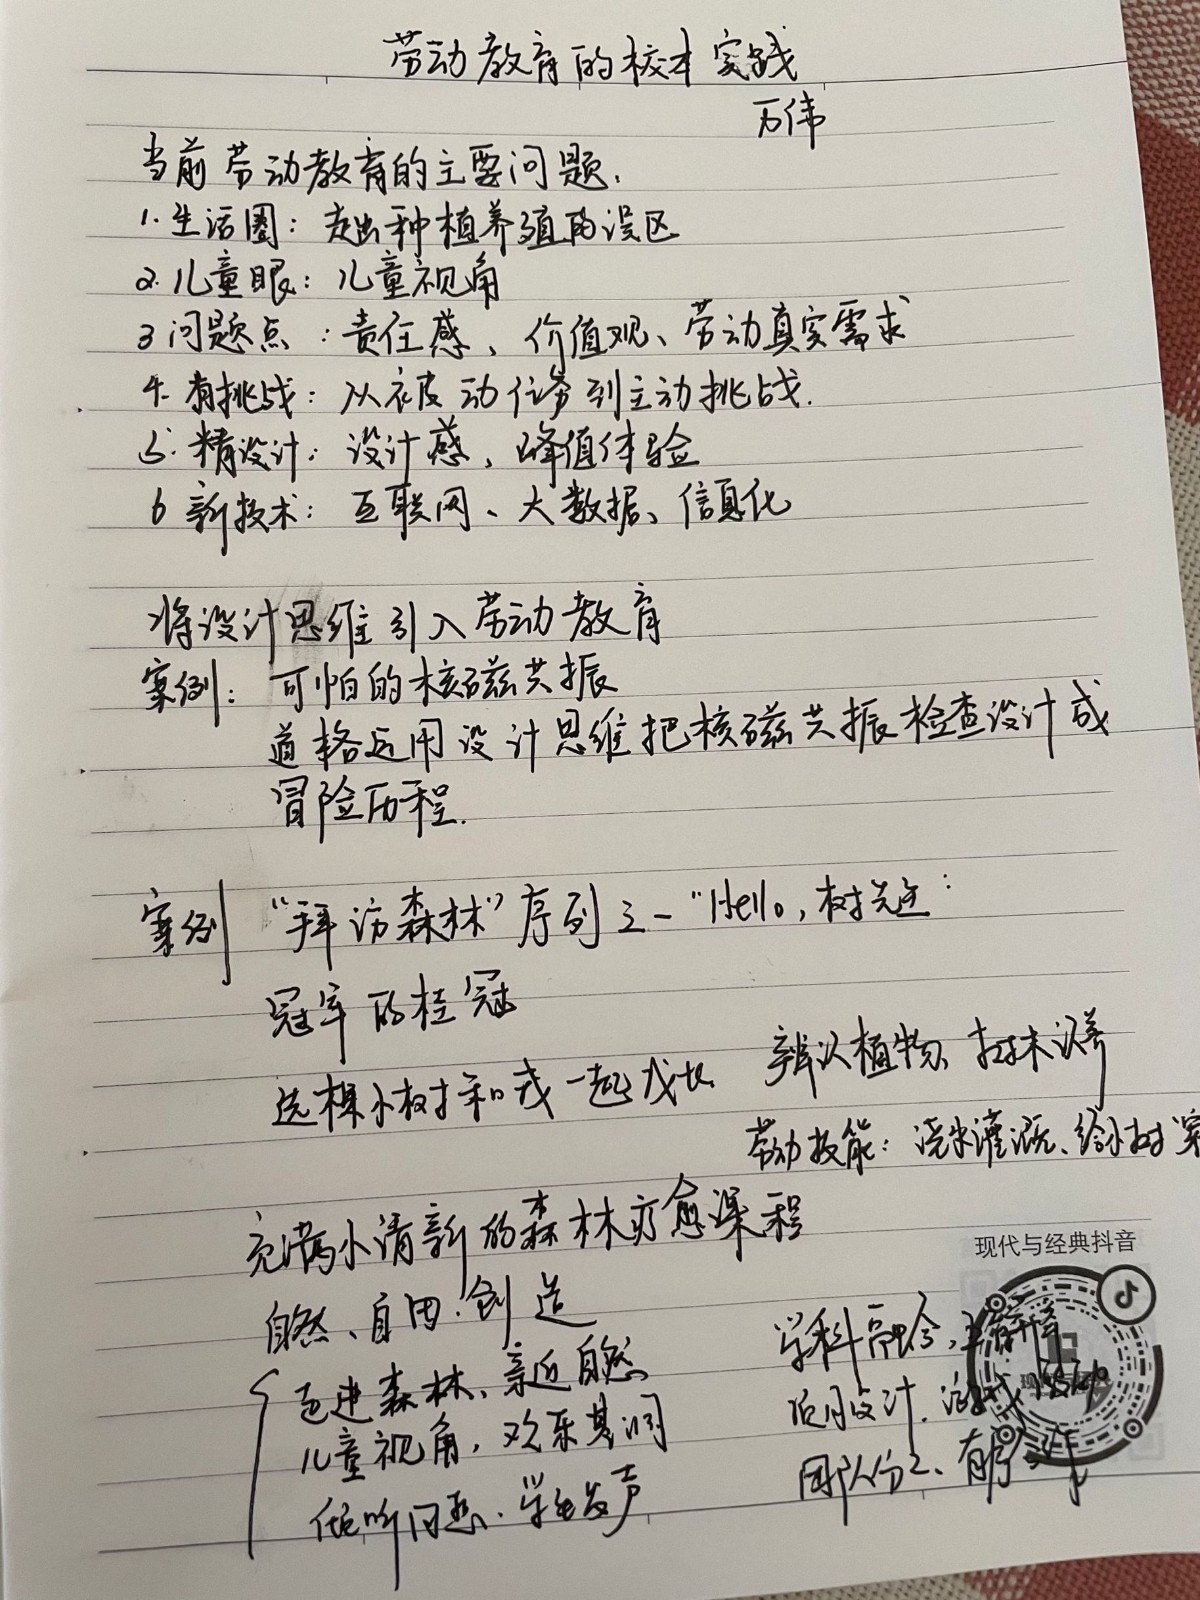 劳动教育的校本实践
万伟
当前劳动教育的主要问题.
1.生活圈：走出种植养殖的误区
2.儿童眼：儿童视角
3问题点：责任感、价值观、劳动真实需求
4.有挑战：从被动任务到主动挑战.
5.精设计：设计感、峰值体验
6新技术：互联网、大数据、信息化
将设计思维引入劳动教育
案例：可怕的核磁共振
道格运用设计思维把核磁共振检查设计成
冒险历程.
案例 "拜访森林"序列之一 "Hello，树先生：
冠军的桂冠
选棵小树和我一起成长 辨认植物、树木认养
劳动技能：浇水灌溉、给小树
充满小清新的森林疗愈课程
现代与经典抖音
自然、自由、创造
学科融合
走进森林、亲近自然
项目设计
儿童视角，欢乐基调
团队分工、有序
倾听问题、学生发声